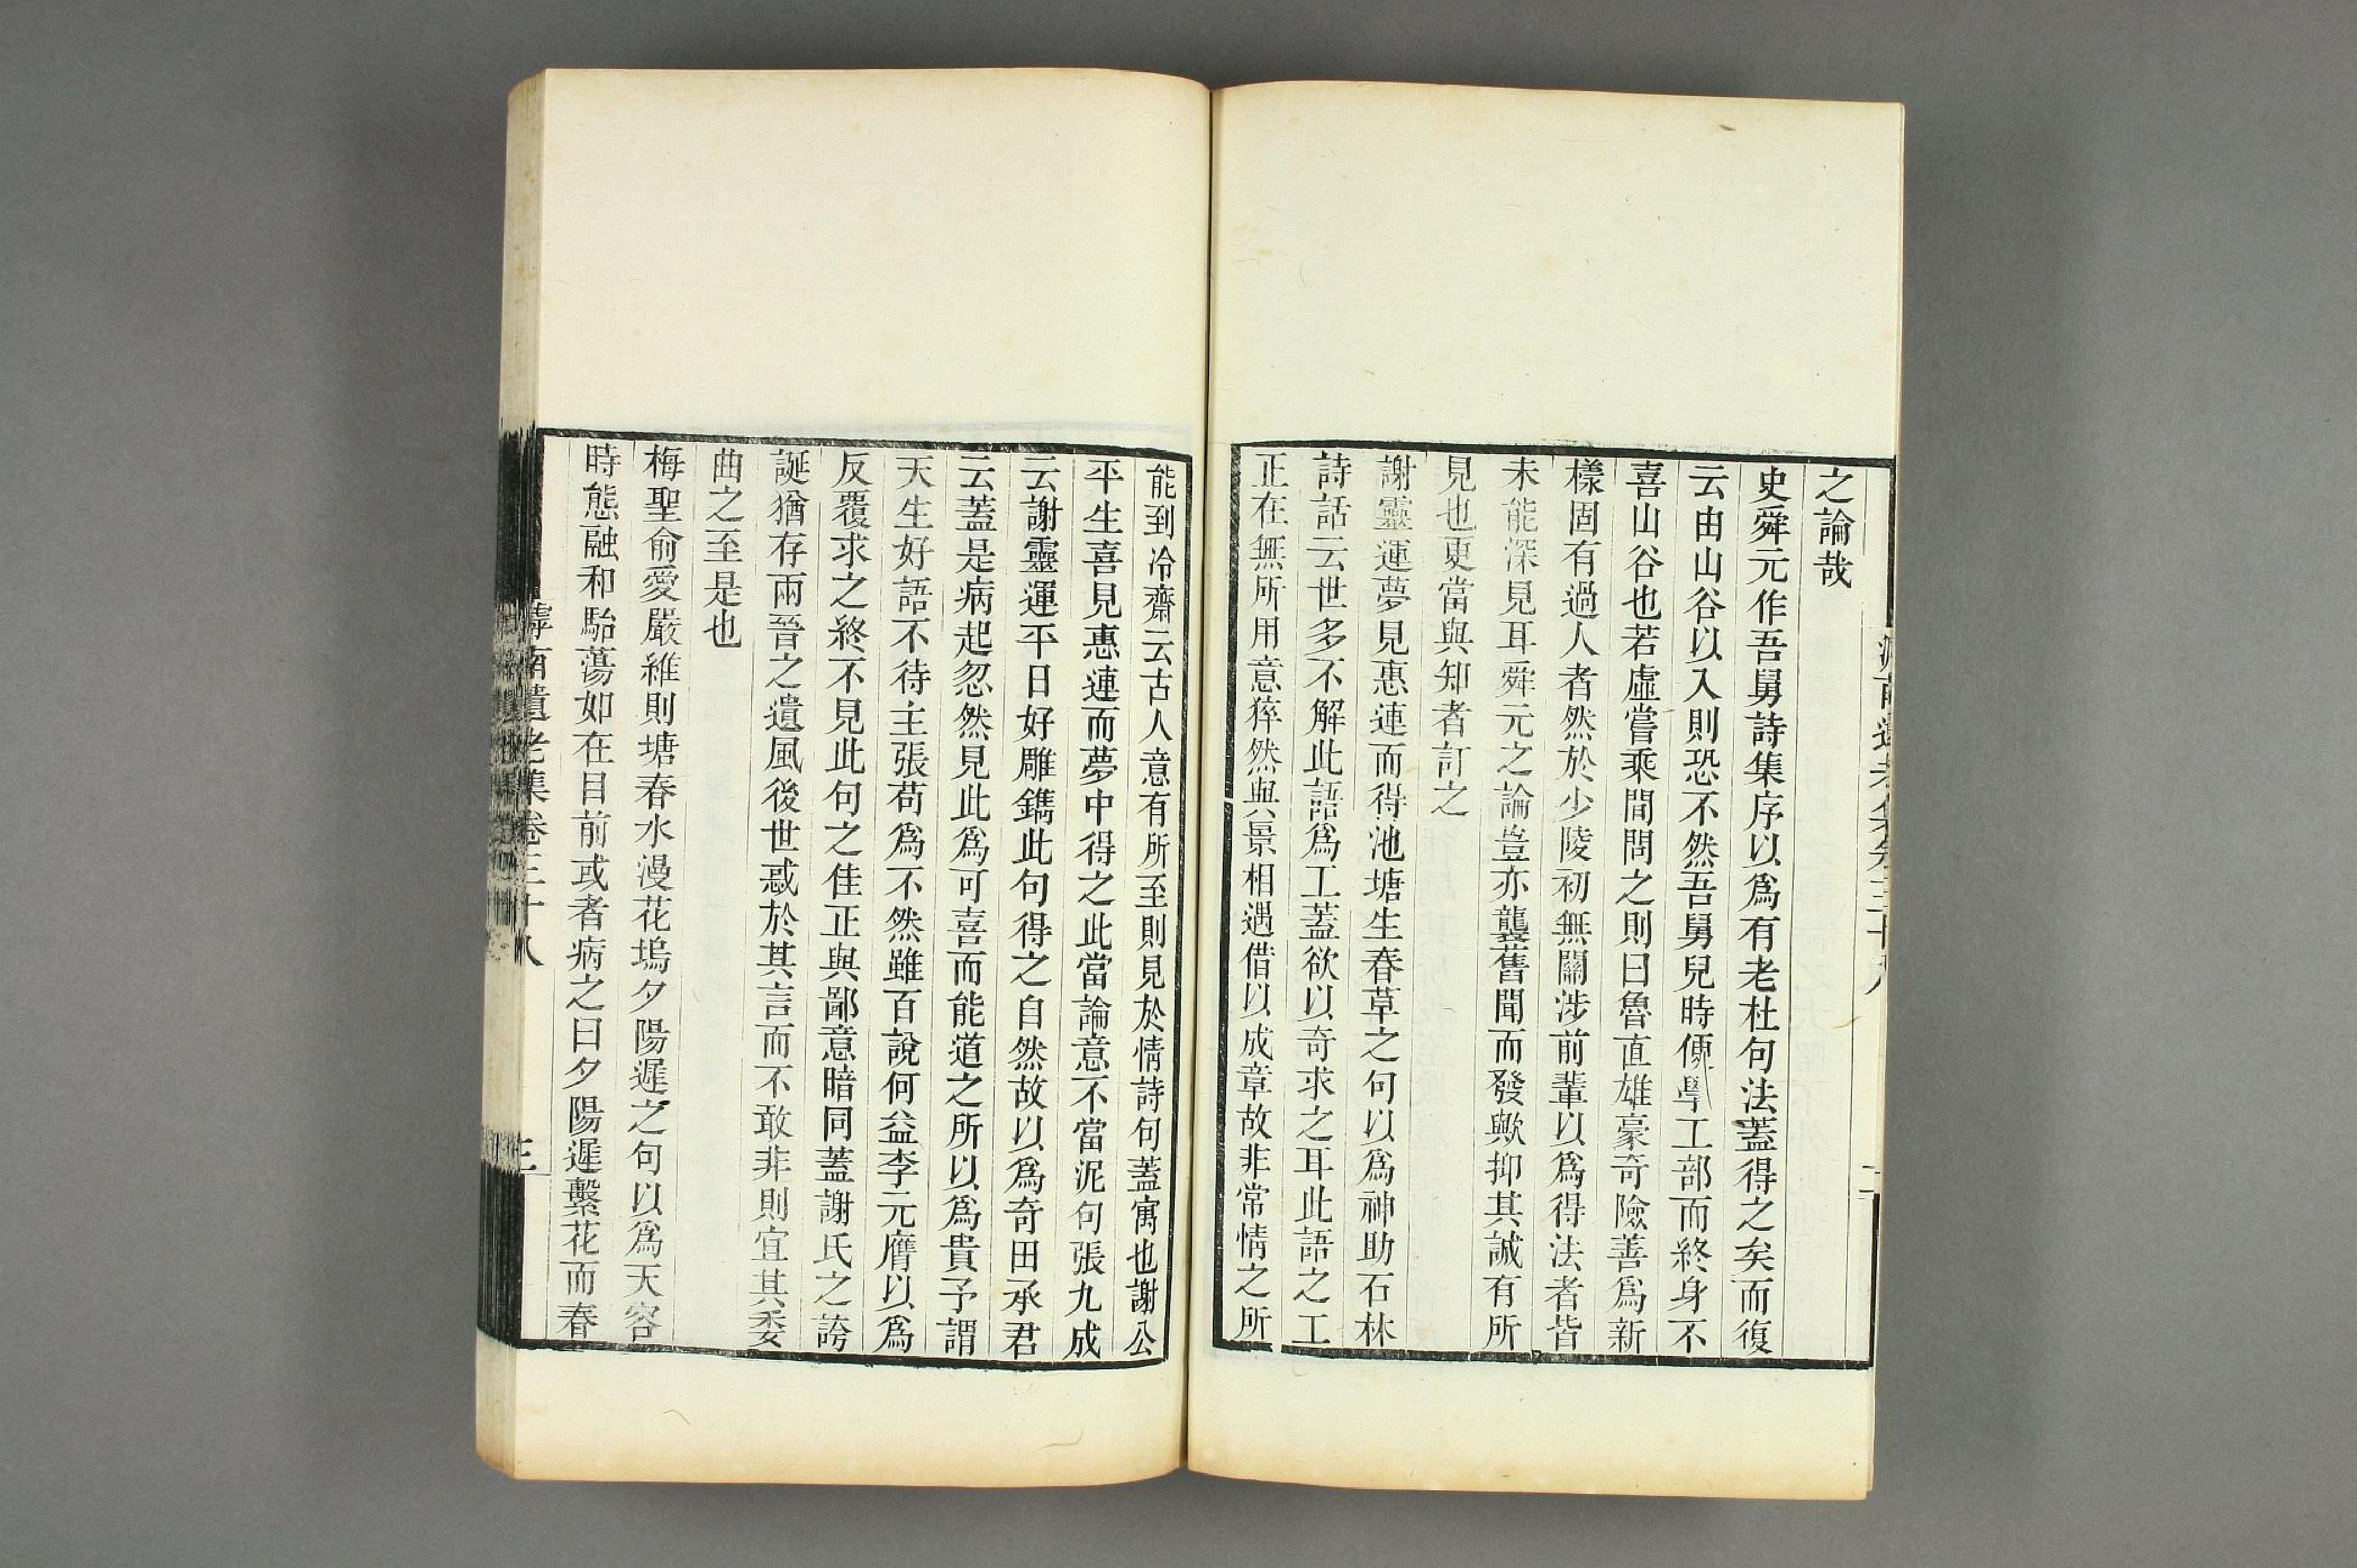 之論哉
史舜元作吾舅詩集序以爲有老杜句法蓋得之矣而復
云由山谷以入則恐不然吾舅兒時便學工部而終身不
喜山谷也若虛嘗乘間問之則曰魯直雄豪奇險善爲新
樣固有過人者然於少陵初無關涉前輩以爲得法者皆
未能深見耳舜元之論豈亦襲舊聞而發歟抑其誠有所
見也更當與知者訂之
謝靈運夢見惠連而得池塘生春草之句以爲神助石林
詩話云世多不解此語爲工蓋欲以奇求之耳此語之工
正在無所用意猝然與景相遇借以成章故非常情之所
能到冷齋云古人意有所至則見於情詩句蓋寓也謝公
平生喜見惠連而夢中得之此當論意不當泥句張九成
云謝靈運平日好雕鐫此句得之自然故以爲奇田承君
云蓋是病起忽然見此爲可喜而能道之所以爲貴予謂
天生好語不待主張苟爲不然雖百說何益李元膺以爲
反覆求之終不見此句之佳正與鄙意暗同蓋謝氏之誇
誕猶存兩晉之遺風後世惑於其言而不敢非則宜其委
曲之至是也
梅聖俞愛嚴維則塘春水漫花塢夕陽遲之句以爲天容
時態融和駘蕩如在目前或者病之曰夕陽遲繫花而春
滹南遺老集卷三十八
三